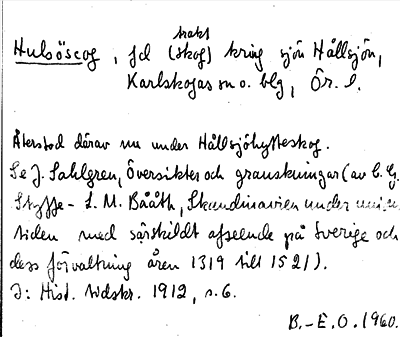 trakt
Hulsöscog, fd (skog) kring sjön Hållsjön,
Karlskogas sn o. blg, Ör. l.
Återstod därav nu under Hållsjöhytteskog.
Se J. Sahlgren, Översikter och granskningar (av C. G.
Styffe - L. M. Bååth, Skandinavien under unions-
tiden med särskildt afseende på Sverige och
dess förvaltning åren 1319 till 1521).
I: Hist. tidskr. 1912, s. 6.
B.-E. O. 1960.